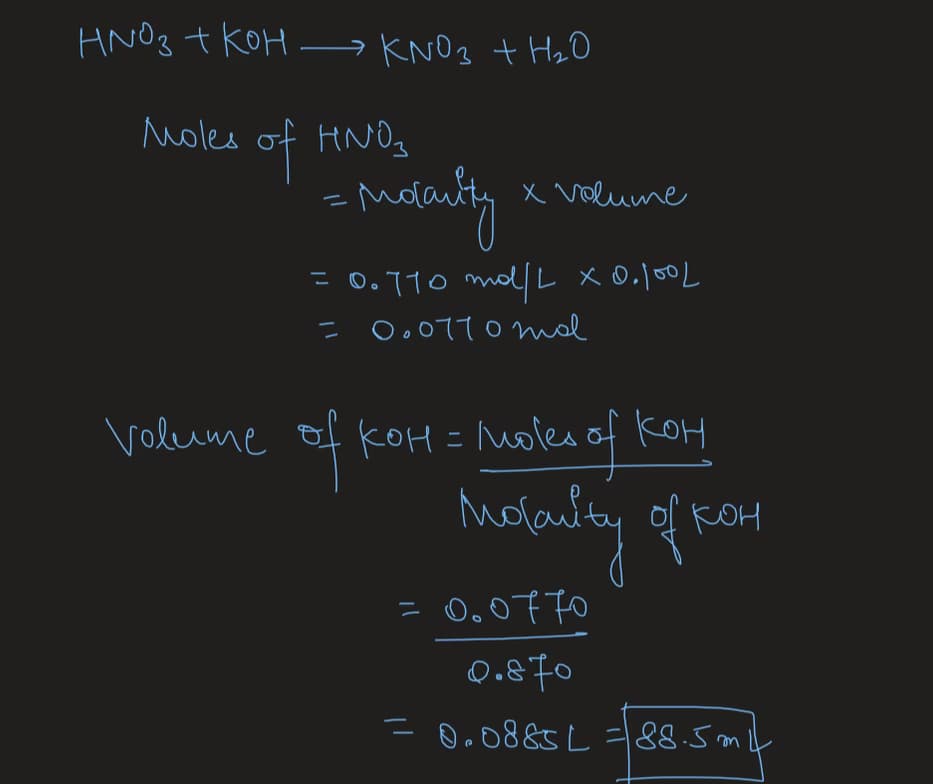 HNO₃ + KOH ⟶ KNO₃ + H₂O
Moles of HNO₃
= Molarity × volume
= 0.770 mol/L × 0.100L
= 0.0770 mol
Volume of KOH = Moles of KOH
Molarity of KOH
= 0.0770
0.870
= 0.0885L = 88.5 mL